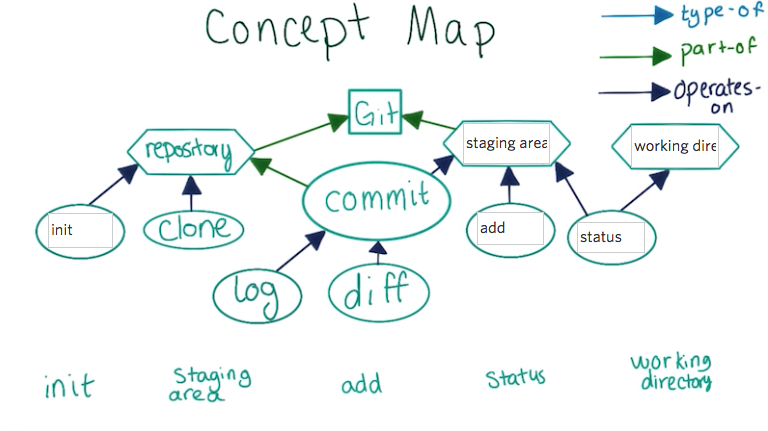 Concept Map
type-of
part-of
operates-
on
Git
repository
staging area
working dire
commit
init
clone
add
status
log
diff
init
Staging
area
add
Status
working
directory